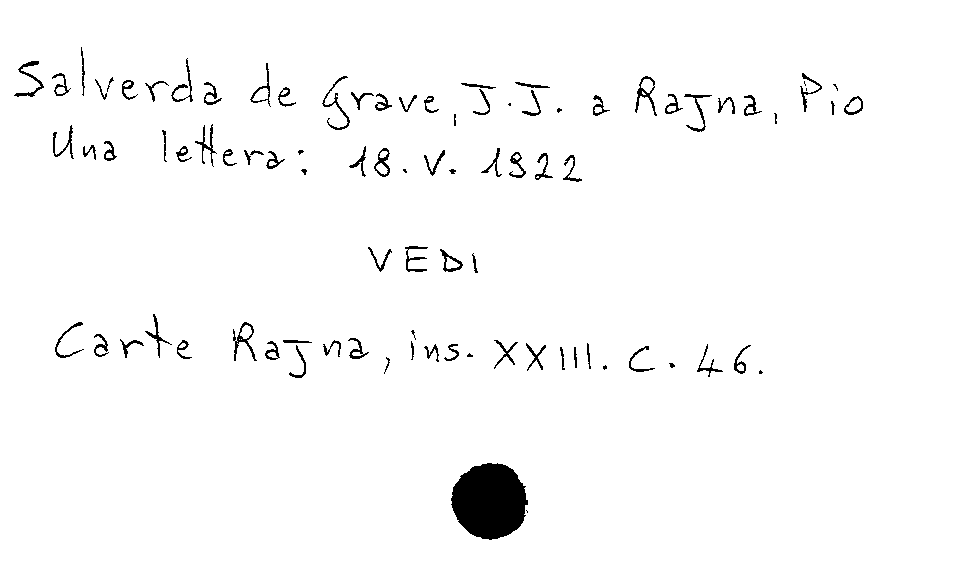 Salverda de Grave, J.J. a Rajna, Pio
Una lettera: 18. V. 1922
VEDI
Carte Rajna, ins. XXIII. C. 46.